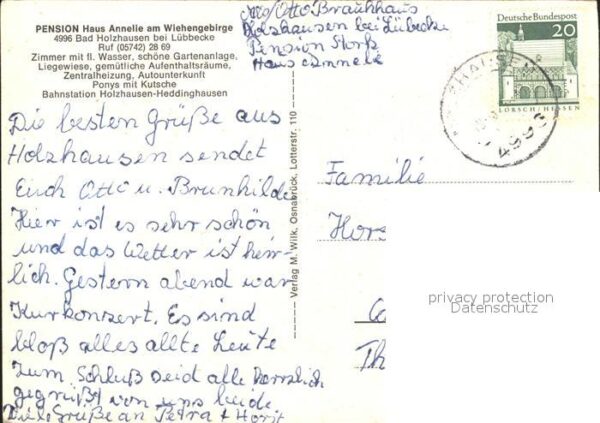 PENSION Haus Annelie am Wiehengebirge
4996 Bad Holzhausen bei Lübbecke
Ruf (05742) 28 69
Zimmer mit fl. Wasser, schöne Gartenanlage,
Liegewiese, gemütliche Aufenthaltsräume,
Zentralheizung, Autounterkunft
Ponys mit Kutsche
Bahnstation Holzhausen-Heddinghausen
Otto Brauhhaus
Holzhausen bei Lübbecke
Pension Stork
Haus Annele
Deutsche Bundespost
20
LORSCH/HESSEN
4996
Die besten Grüße aus
Holzhausen sendet
Euch Otto u. Brunhilde
Hier ist es sehr schön
und das Wetter ist herr-
lich. Gestern abend war
Kurkonzert. Es sind
bloß alles alte Leute
Zum Schluß seid alle herzlich
gegrüßt von uns beide
Viele Grüße an Petra + Horst
Verlag M. Wilk, Osnabrück, Lotterstr. 110
Familie
Hors
Th
privacy protection
Datenschutz